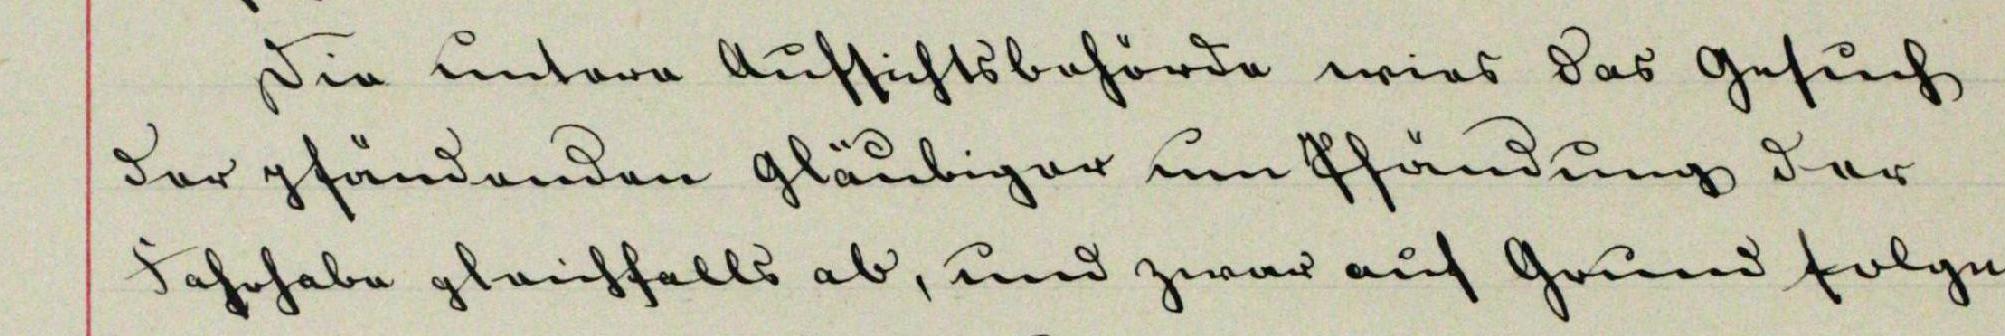 Die untere Aufsichtsbehörde wies das Gesuch
der pfändenden Gläubiger um Pfändung der
Fahrhabe gleichfalls ab, und zwar auf Grund folge